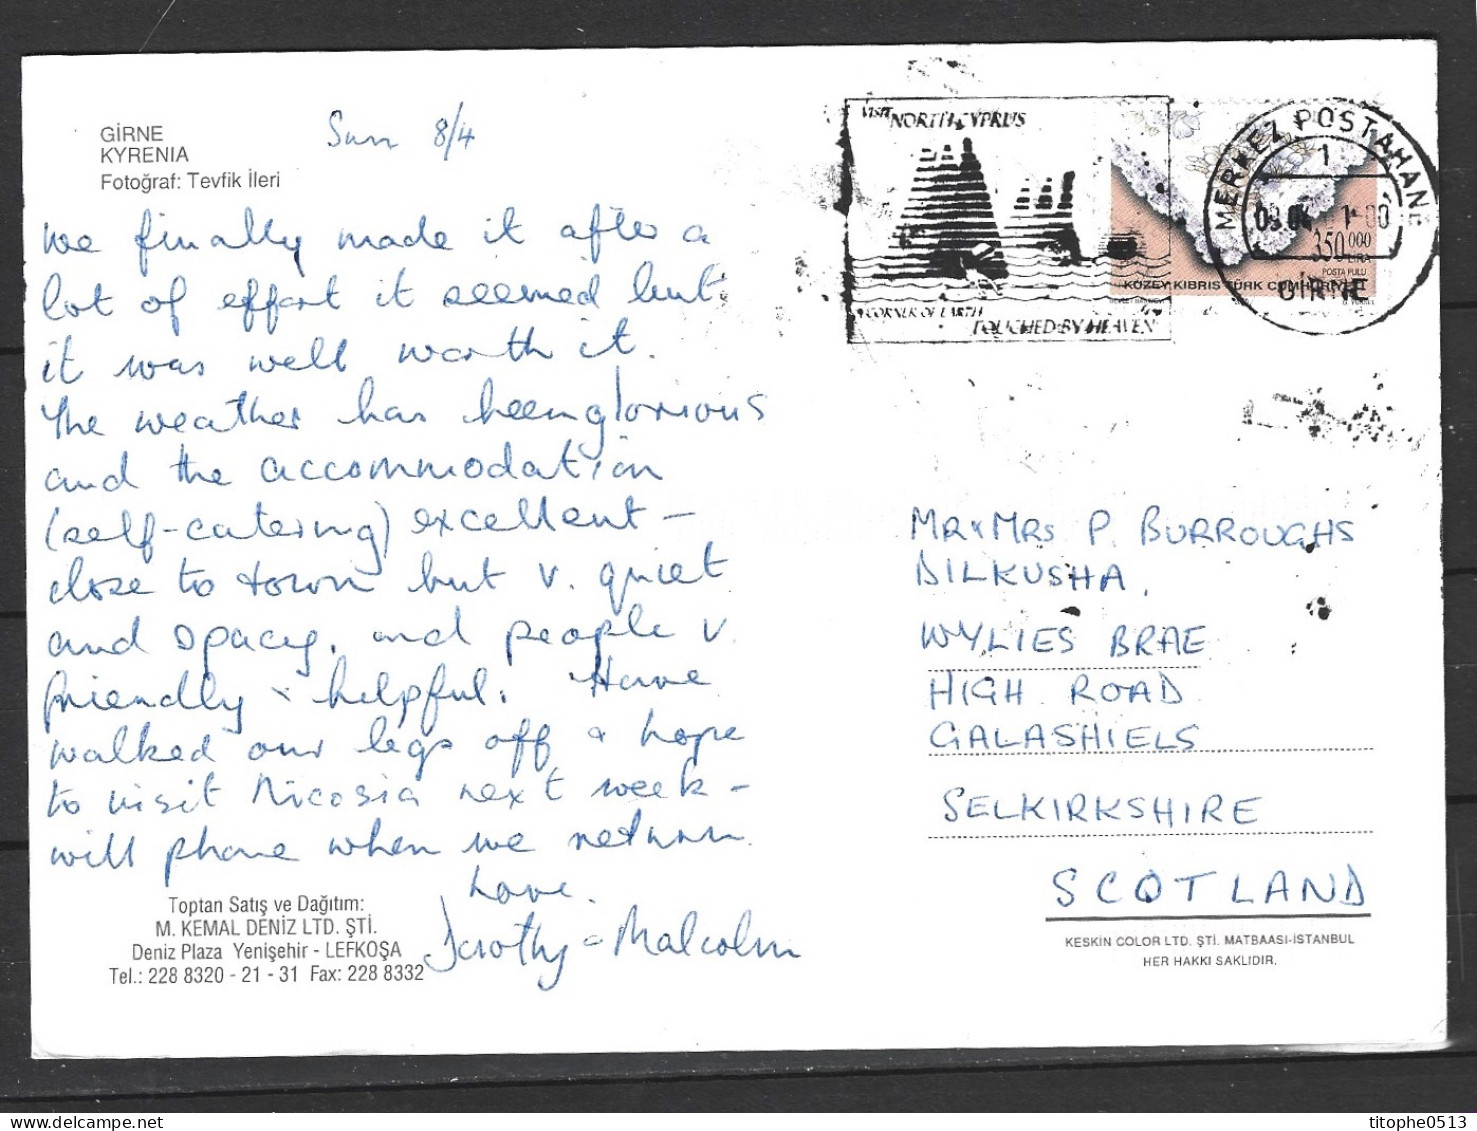 GİRNE
KYRENIA
Fotoğraf: Tevfik İleri
Sun 8/4
We finally made it after a
lot of effort it seemed but
it was well worth it.
The weather has been glorious
and the accommodation
(self-catering) excellent -
close to town but v. quiet
and spacey, and people v.
friendly & helpful. Have
walked our legs off & hope
to visit Nicosia next week -
will phone when we return.
Love.
Dorothy & Malcolm
Toptan Satış ve Dağıtım:
M. KEMAL DENİZ LTD. ŞTİ.
Deniz Plaza Yenişehir - LEFKOŞA
Tel.: 228 8320 - 21 - 31 Fax: 228 8332
VISIT NORTH CYPRUS
A CORNER OF EARTH
TOUCHED BY HEAVEN
MERKEZ POSTAHANE
1
GİRNE
350 000
LİRA
POSTA PULU
KUZEY KIBRIS TÜRK CUMHURİYETİ
MR & MRS P. BURROUGHS
DILKUSHA,
WYLIES BRAE
HIGH ROAD
GALASHIELS
SELKIRKSHIRE
SCOTLAND
KESKİN COLOR LTD. ŞTİ. MATBAASI-İSTANBUL
HER HAKKI SAKLIDIR.
titophe0513